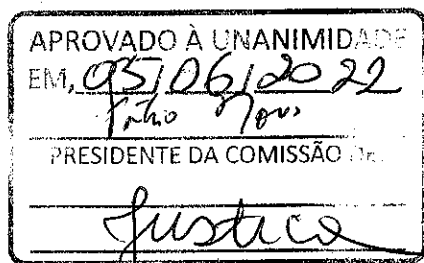 APROVADO À UNANIMIDADE
EM, 05/06/2022
PRESIDENTE DA COMISSÃO DE
Justica